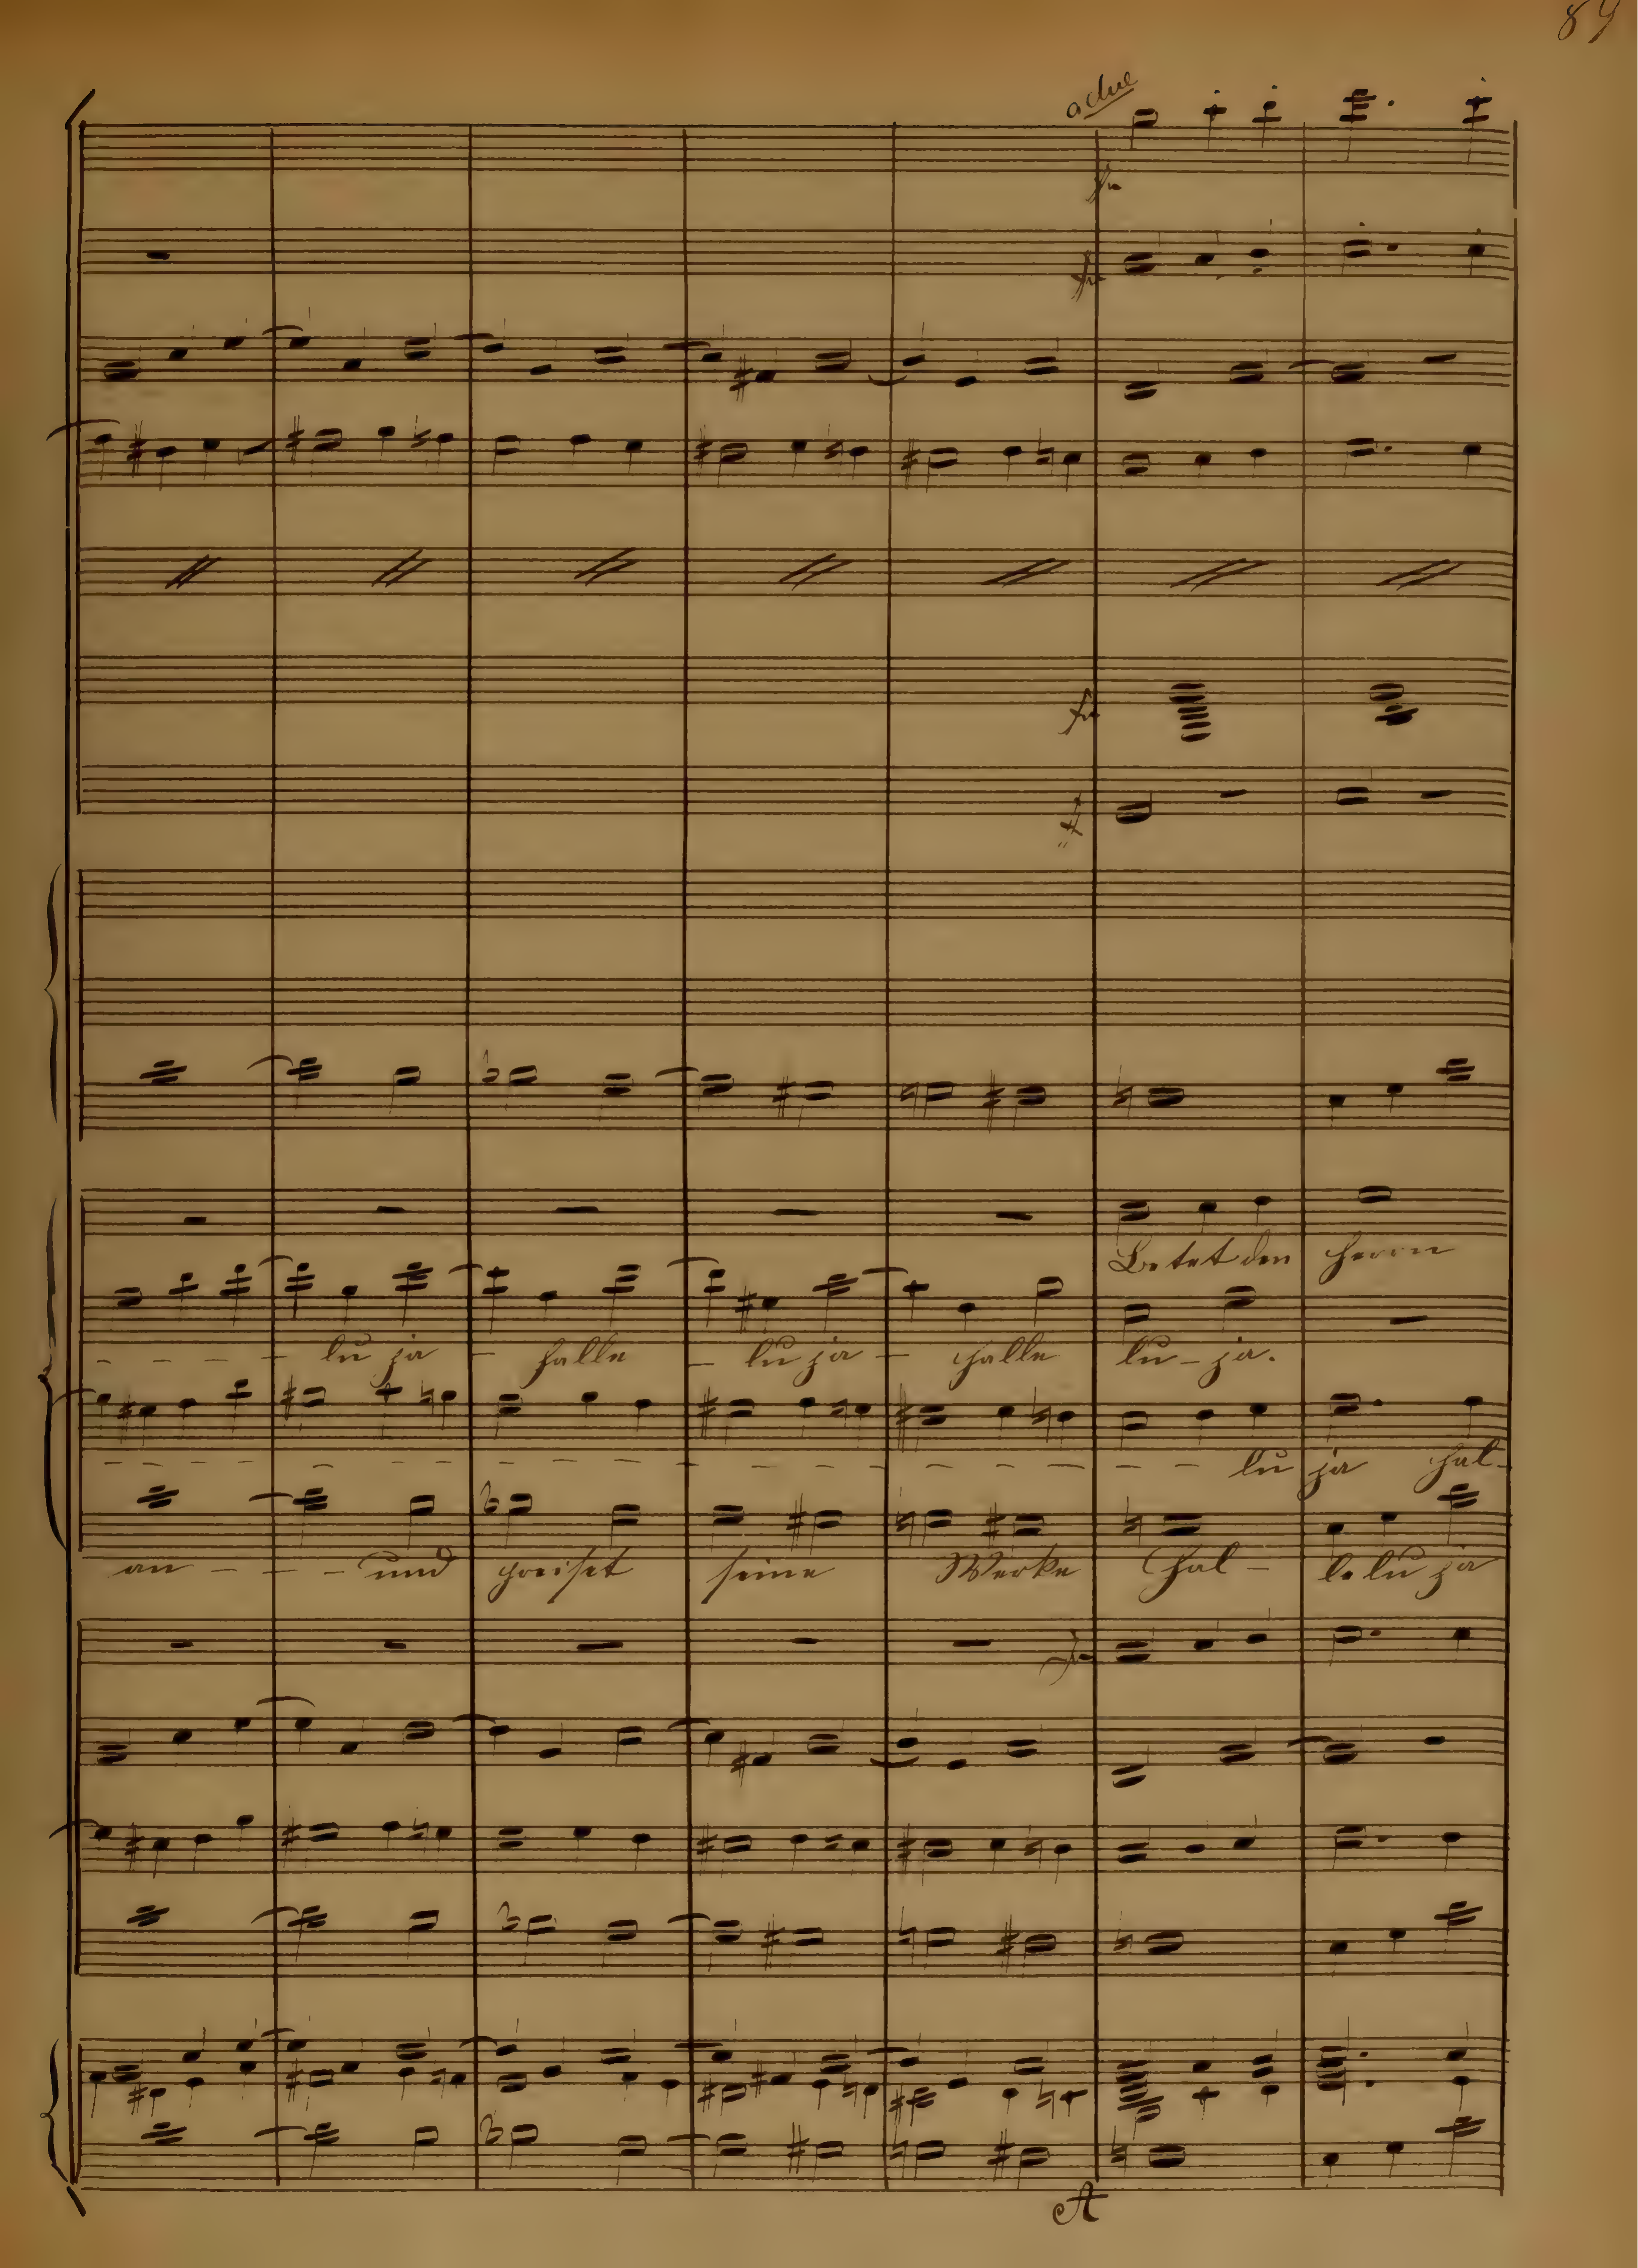 89
a due
Betet den Herrn
- - - - - lu ja - halle - lu ja - halle lu - ja.
- - - - - - - - - - - - - - - lu ja hal-
an - - - und preiset seine Werke Hal - le lu ja
A